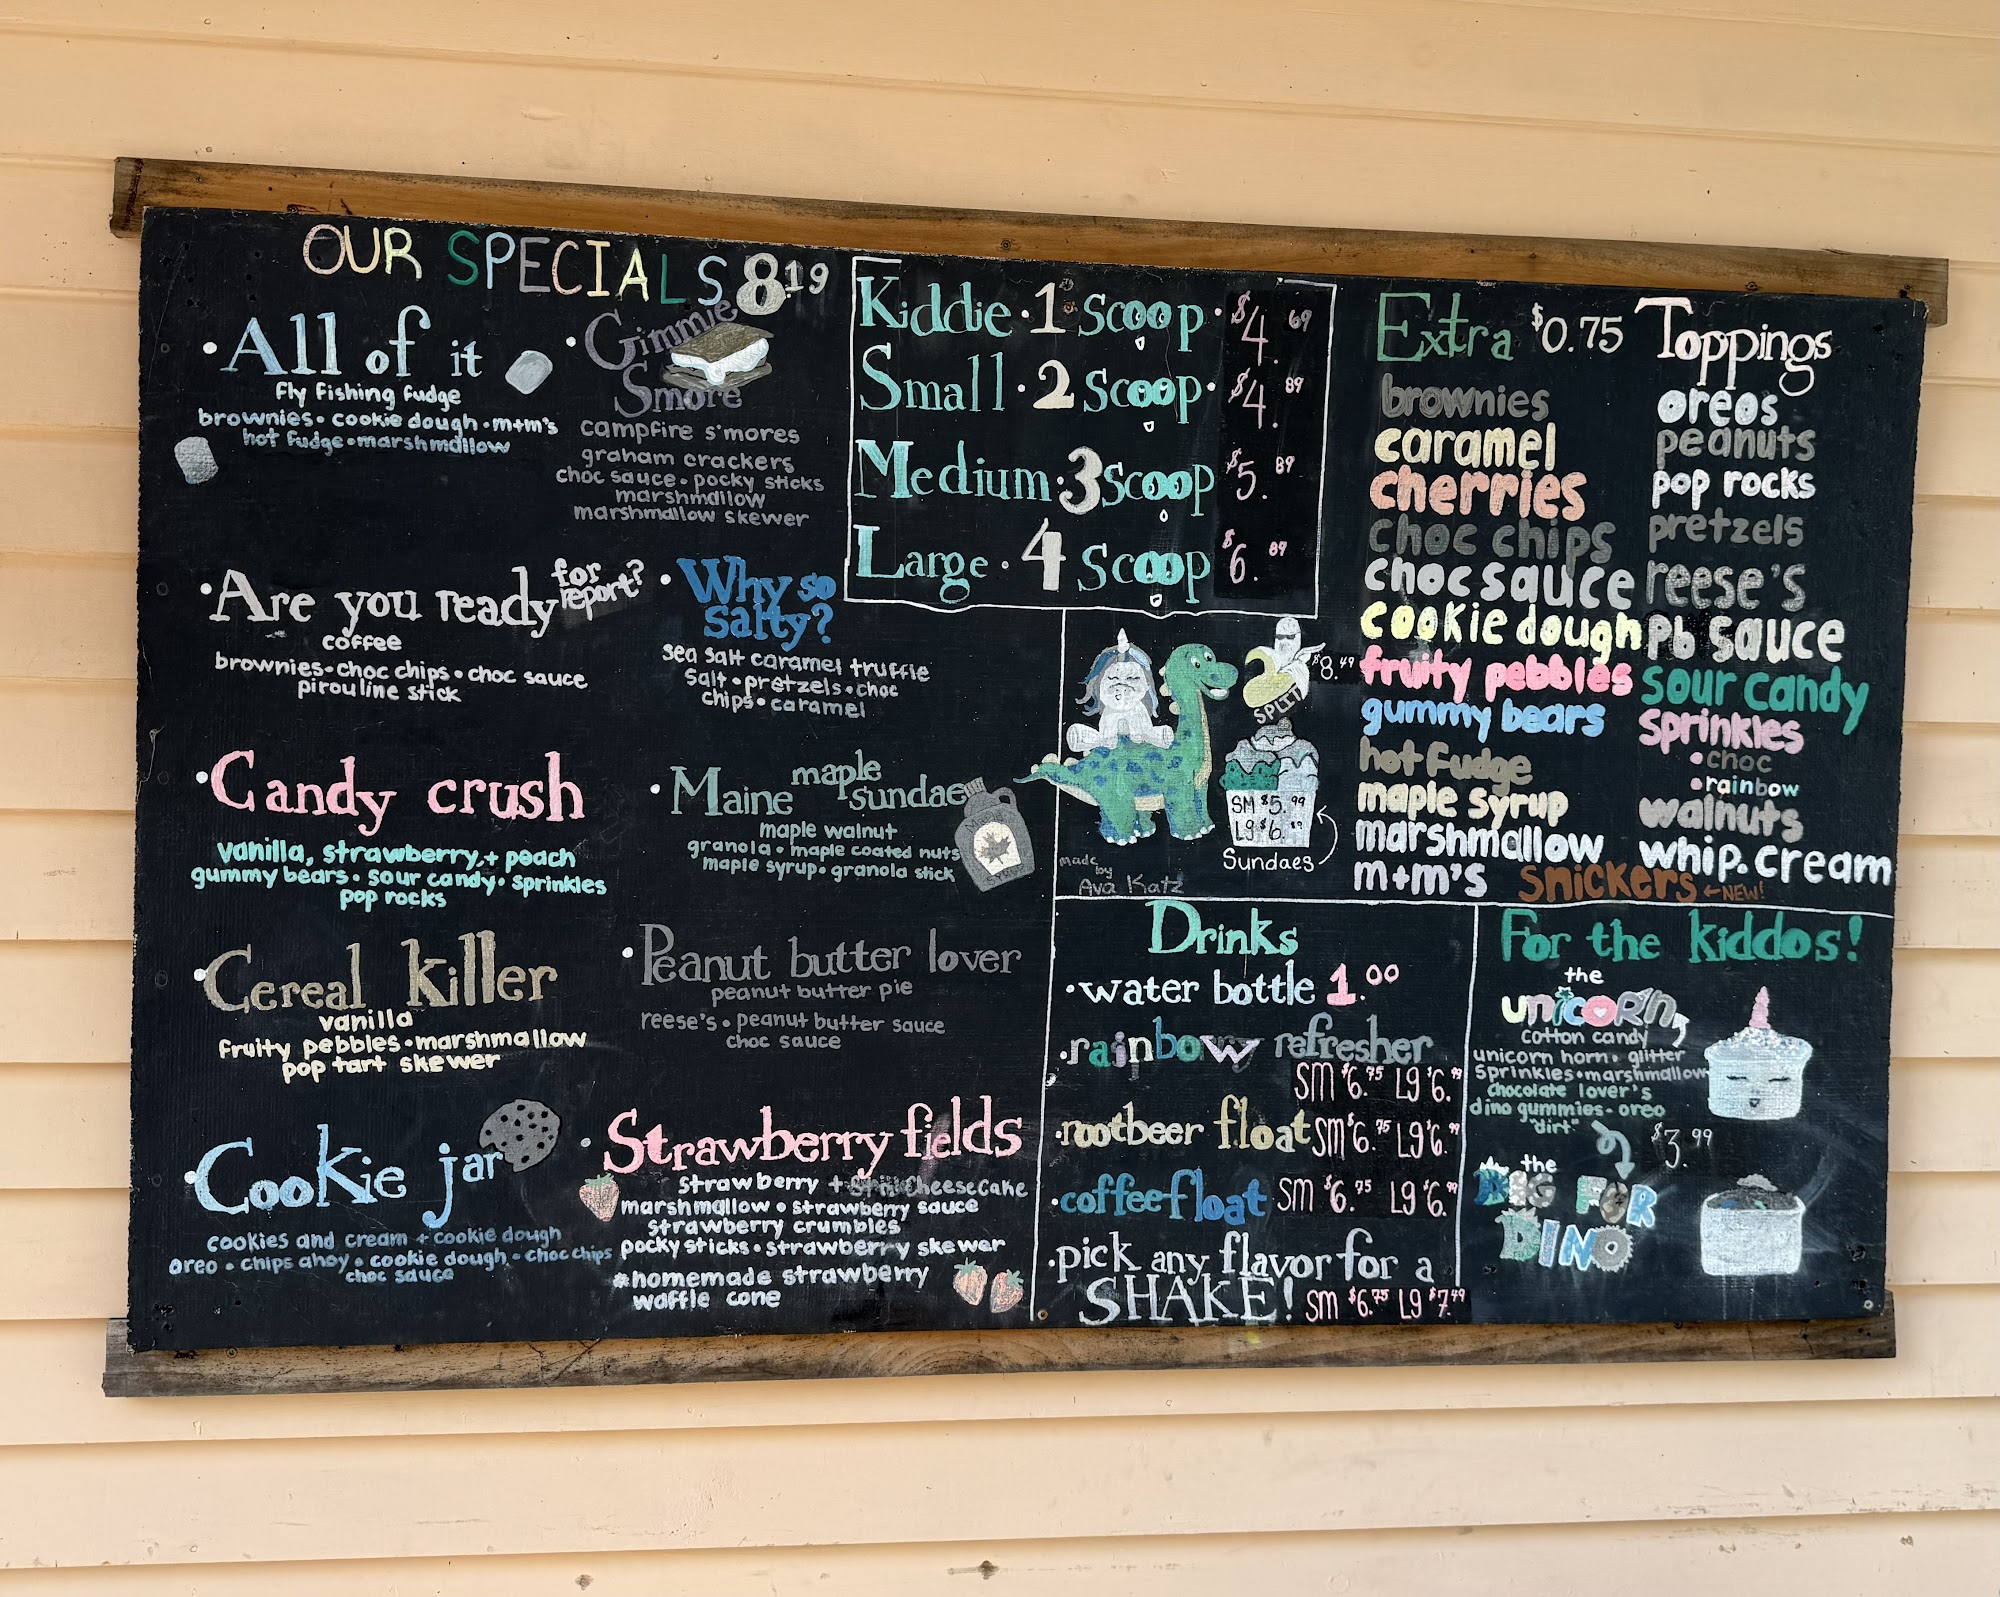 OUR SPECIALS 8.19
• All of it
fly fishing fudge
brownies • cookie dough • m+m's
hot fudge • marshmallow
• Gimmie
Smore
campfire s'mores
graham crackers
choc sauce • pocky sticks
marshmallow
marshmallow skewer
• Are you ready for report?
coffee
brownies • choc chips • choc sauce
pirouline stick
• Why so
salty?
sea salt caramel truffle
salt • pretzels • choc
chips • caramel
• Candy crush
vanilla, strawberry, + peach
gummy bears • sour candy • sprinkles
pop rocks
• Maine maple sundae
maple walnut
granola • maple coated nuts
maple syrup • granola stick
• Cereal Killer
vanilla
fruity pebbles • marshmallow
pop tart skewer
• Peanut butter lover
peanut butter pie
reese's • peanut butter sauce
choc sauce
• Cookie jar
cookies and cream + cookie dough
oreo • chips ahoy • cookie dough • choc chips
choc sauce
• Strawberry fields
strawberry + cheesecake
marshmallow • strawberry sauce
strawberry crumbles
pocky sticks • strawberry skewer
*homemade strawberry
waffle cone
Kiddie • 1 Scoop • $4.69
Small • 2 Scoop • $4.89
Medium • 3 Scoop $5.89
Large • 4 Scoop $6.89
SPLIT $8.49
SM $5.99
Lg $6.19
Sundaes
made
by
Ava Katz
Extra $0.75 Toppings
brownies
caramel
cherries
choc chips
choc sauce
cookie dough
fruity pebbles
gummy bears
hot fudge
maple syrup
marshmallow
m+m's
snickers ←NEW!
oreos
peanuts
pop rocks
pretzels
reese's
pb sauce
sour candy
sprinkles
• choc
• rainbow
walnuts
whip. cream
Drinks
• water bottle 1.00
• rainbow refresher
SM $6.75 Lg $6.99
• rootbeer float SM $6.75 Lg $6.99
• coffee float SM $6.75 Lg $6.99
• pick any flavor for a
SHAKE! SM $6.75 Lg $7.49
For the kiddos!
the
unicorn
cotton candy
unicorn horn • glitter
sprinkles • marshmallow
chocolate lover's
dino gummies • oreo
"dirt"
$3.99
the
DIG FOR
DINO